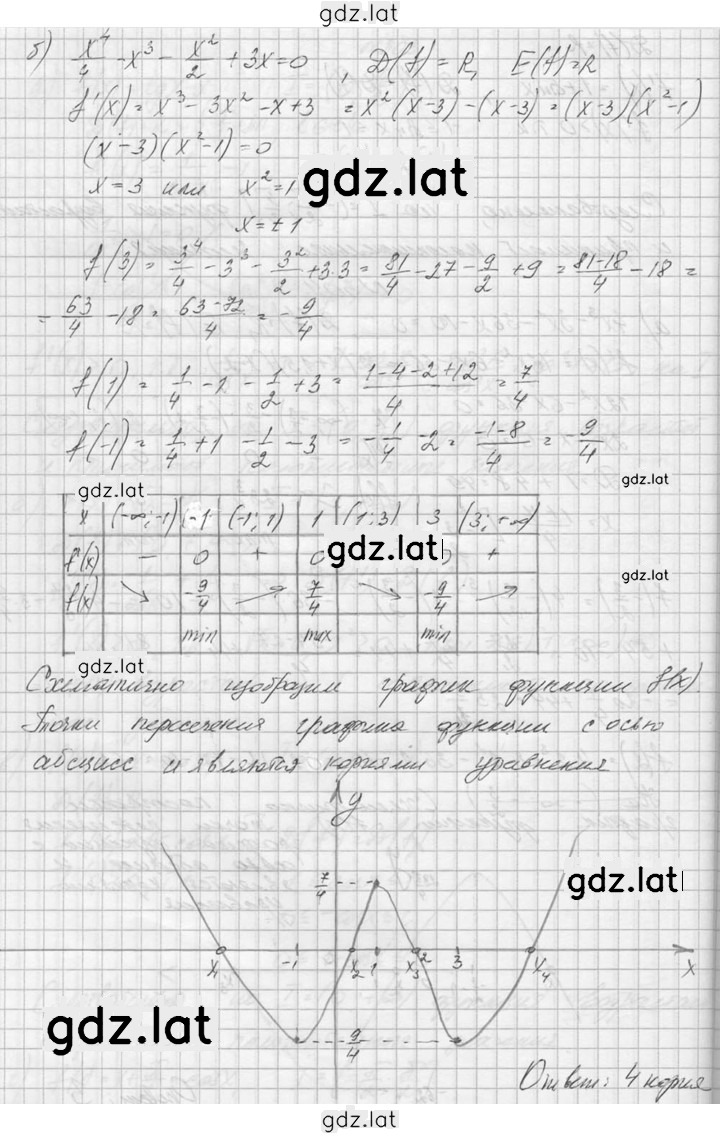 gdz.lat
б) x⁴/4 - x³ - x²/2 + 3x = 0 , D(f) = R, E(f) = R
f'(x) = x³ - 3x² - x + 3 = x²(x-3) - (x-3) = (x-3)(x²-1)
(x-3)(x²-1) = 0
x = 3 или x² = 1
gdz.lat
x = ±1
f(3) = 3⁴/4 - 3³ - 3²/2 + 3·3 = 81/4 - 27 - 9/2 + 9 = 81-18/4 - 18 =
= 63/4 - 18 = 63-72/4 = - 9/4
f(1) = 1/4 - 1 - 1/2 + 3 = 1-4-2+12/4 = 7/4
f(-1) = 1/4 + 1 - 1/2 - 3 = - 1/4 - 2 = -1-8/4 = - 9/4
gdz.lat
gdz.lat
x (-∞;-1) -1 (-1;1) 1 (1;3) 3 (3;+∞)
f'(x) - 0 + 0 0 +
gdz.lat
gdz.lat
f(x) ↘ -9/4 ↗ 7/4 ↘ -9/4 ↗
min max min
gdz.lat
Схематично изобразим график функции f(x).
Точки пересечения графика функции с осью
абсцисс и являются корнями уравнения
y
7/4
gdz.lat
x₁ -1 x₂ 1 x₃ 2 3 x₄ x
gdz.lat
9/4
Ответ: 4 корня
gdz.lat